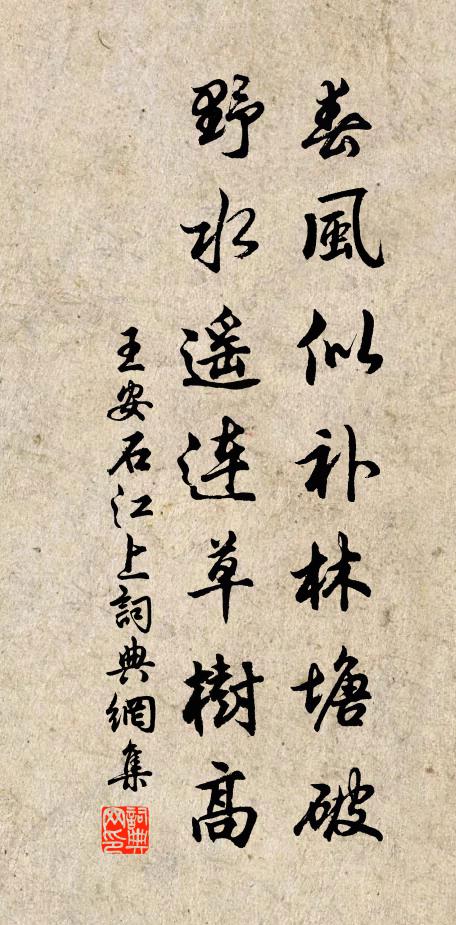 春風似补林塘破
野水遥連草樹高
王安石江上詞典網集
詞典网印